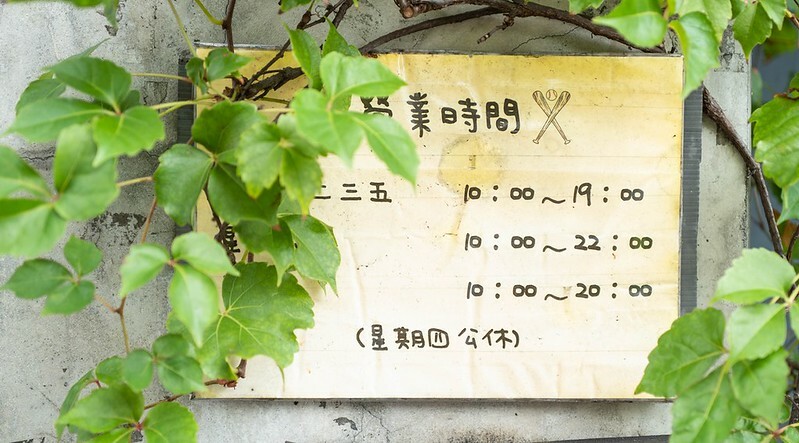 營業時間
二三五 10:00~19:00
10:00~22:00
10:00~20:00
(星期四公休)